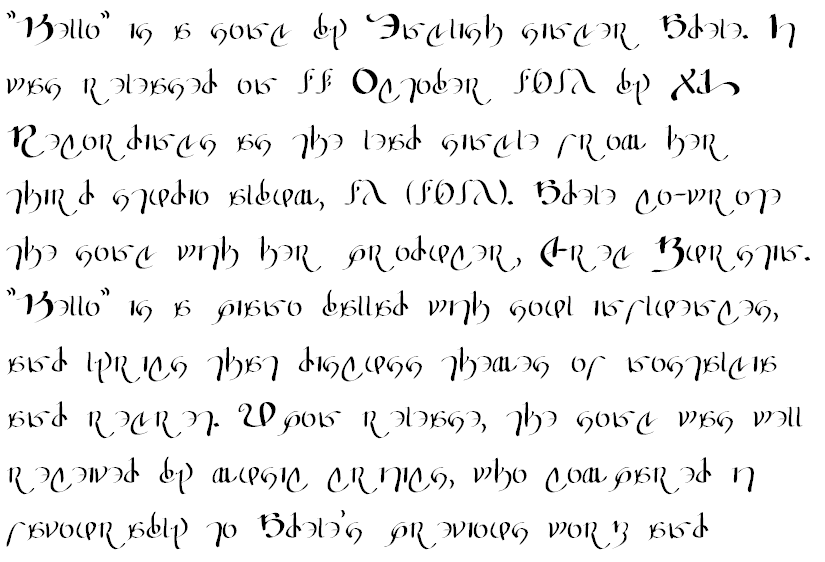 "Hello" is a song by English singer Adele. It
was released on 23 October 2015 by XL
Recordings as the lead single from her
third studio album, 25 (2015). Adele co-wrote
the song with her producer, Greg Kurstin.
"Hello" is a piano ballad with soul influences,
and lyrics that discuss themes of nostalgia
and regret. Upon release, the song was well
received by music critics, who compared it
favourably to Adele's previous work and